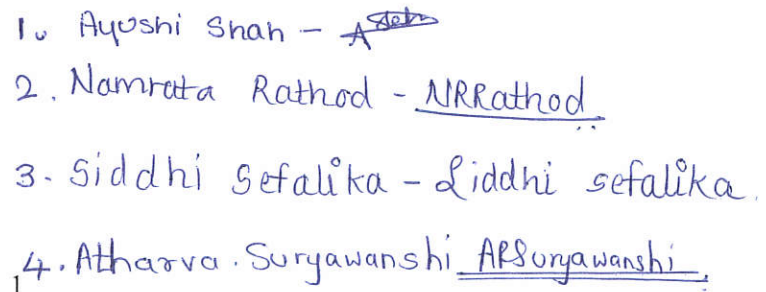 1. Ayushi Shah - A
2. Namrata Rathod - NRRathod
3. Siddhi Sefalika - Siddhi sefalika.
4. Atharva. Suryawanshi ARSuryawanshi
1